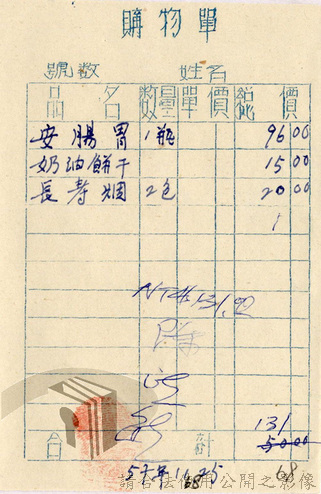 購物單
號数 姓名
品名 数量 單價 總價
安腸胃 1瓶 96 00
奶油餅干 15 00
長寿烟 2包 20 00
NT$131.00
131
合 計 50 00
57年11 25
68
請合法使用公開之影像